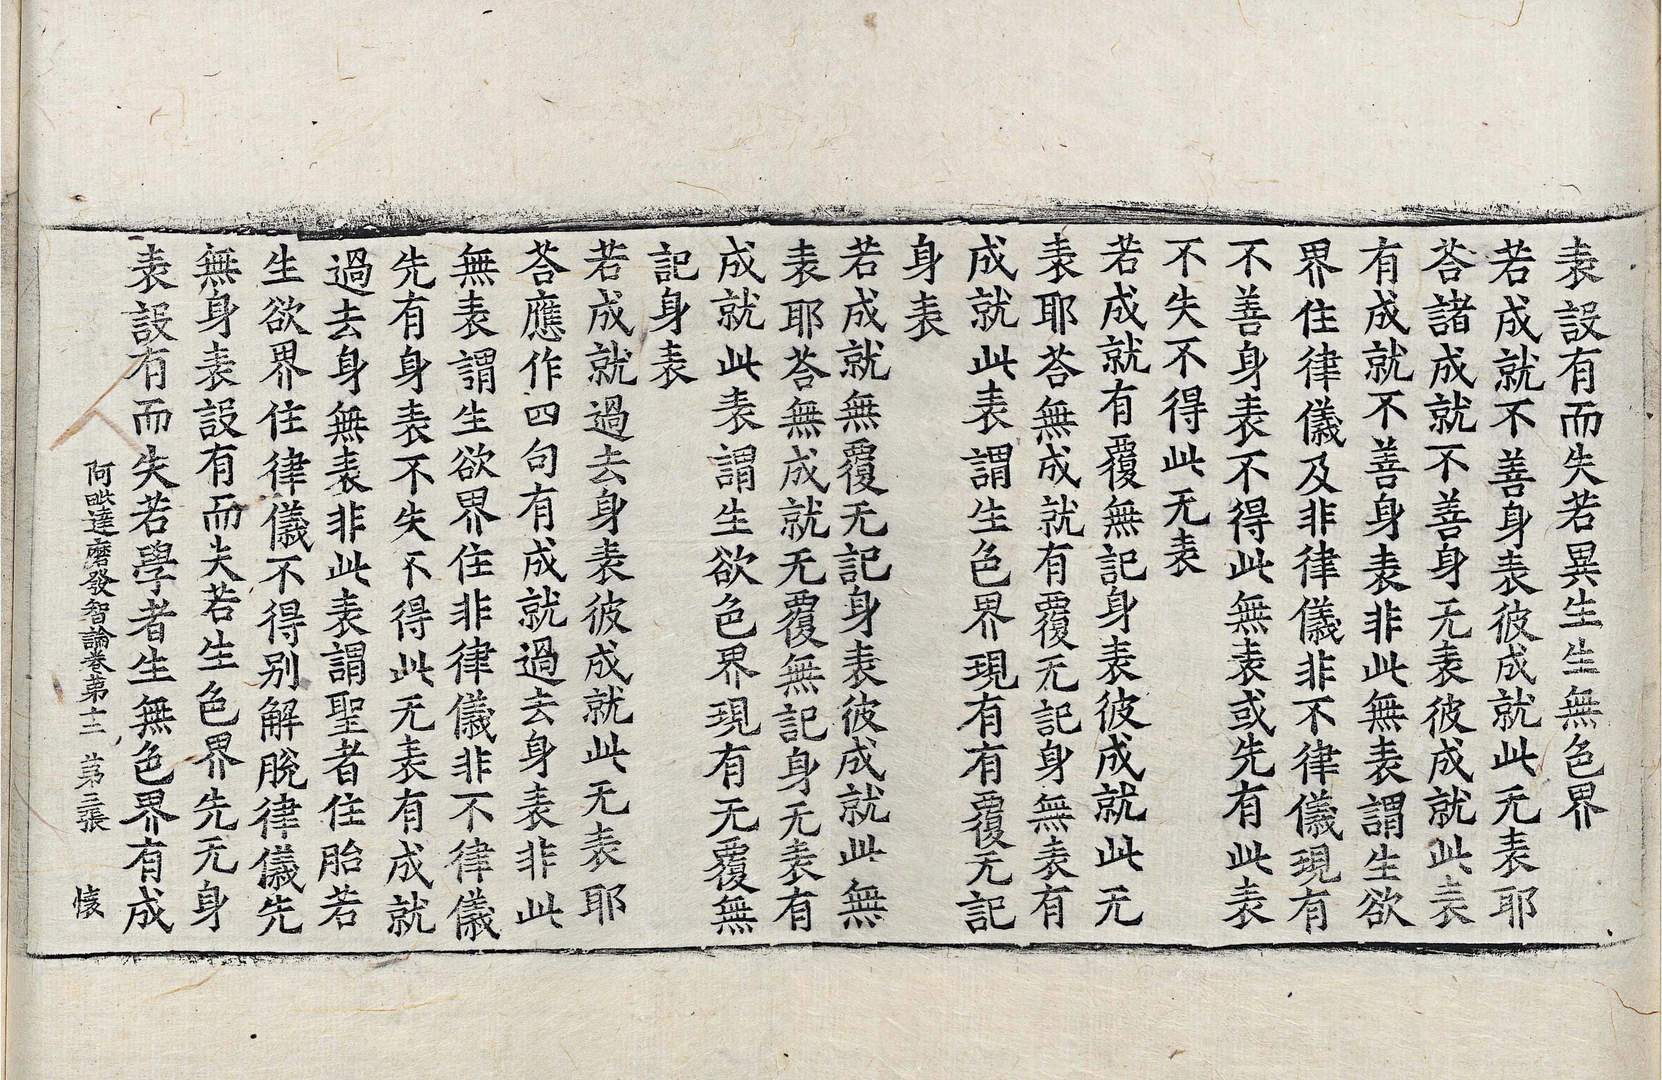 表設有而失若異生生無色界
若成就不善身表彼成就此无表耶
荅諸成就不善身无表彼成就此表
有成就不善身表非此無表謂生欲
界住律儀及非律儀非不律儀現有
不善身表不得此無表或先有此表
不失不得此无表
若成就有覆無記身表彼成就此无
表耶荅無成就有覆无記身無表有
成就此表謂生色界現有有覆无記
身表
若成就無覆无記身表彼成就此無
表耶荅無成就无覆無記身无表有
成就此表謂生欲色界現有无覆無
記身表
若成就過去身表彼成就此无表耶
荅應作四句有成就過去身表非此
無表謂生欲界住非律儀非不律儀
先有身表不失不得此无表有成就
過去身無表非此表謂聖者住胎若
生欲界住律儀不得别解脫律儀先
無身表設有而失若生色界先无身
表設有而失若學者生無色界有成
阿毗達磨發智論卷第十二 第三張 懷